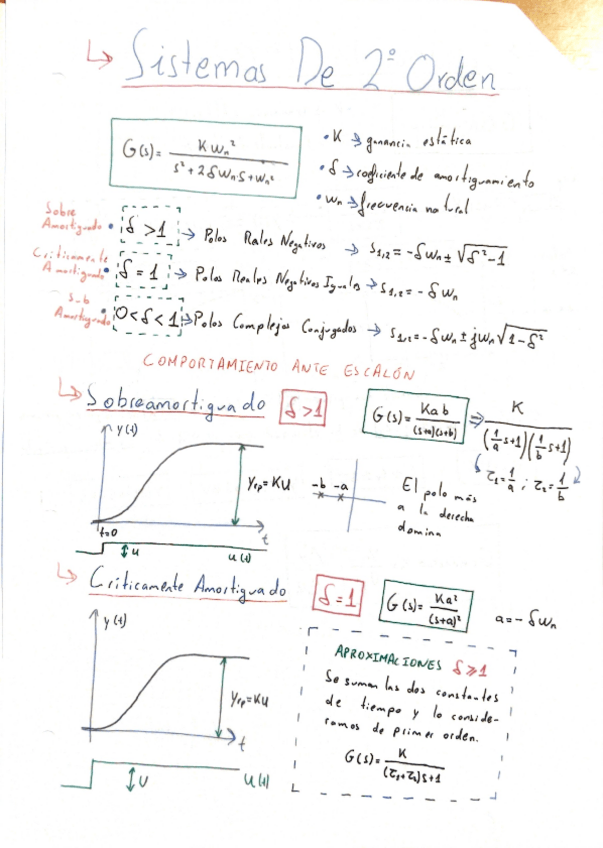 ↳ Sistemas De 2º Orden
G(s) = K wn² / s² + 2δwn·s + wn²
• K → ganancia estática
• δ → coeficiente de amortiguamiento
• wn → frecuencia natural
Sobre Amortiguado • δ > 1 → Polos Rales Negativos → s1,2 = -δwn ± √δ²-1
Críticamente Amortiguado • δ = 1 → Polos Reales Negativos Iguales → s1,2 = -δwn
Sub Amortiguado • 0 < δ < 1 → Polos Complejos Conjugados → s1,2 = -δwn ± jwn√1-δ²
COMPORTAMIENTO ANTE ESCALÓN
↳ Sobreamortiguado δ > 1
G(s) = Kab / (s+a)(s+b) ⇒ K / (1/a s+1)(1/b s+1)
τ1 = 1/a ; τ2 = 1/b
y(t)
Yrp = KU
t=0
t
U
U(t)
-b -a
El polo más
a la derecha
domina
↳ Críticamente Amortiguado δ = 1
G(s) = Ka² / (s+a)²
a = -δwn
y(t)
Yrp = KU
t
U
U(t)
APROXIMACIONES δ ≥ 1
Se suman las dos constantes
de tiempo y lo conside-
ramos de primer orden.
G(s) = K / (τ1+τ2)s+1